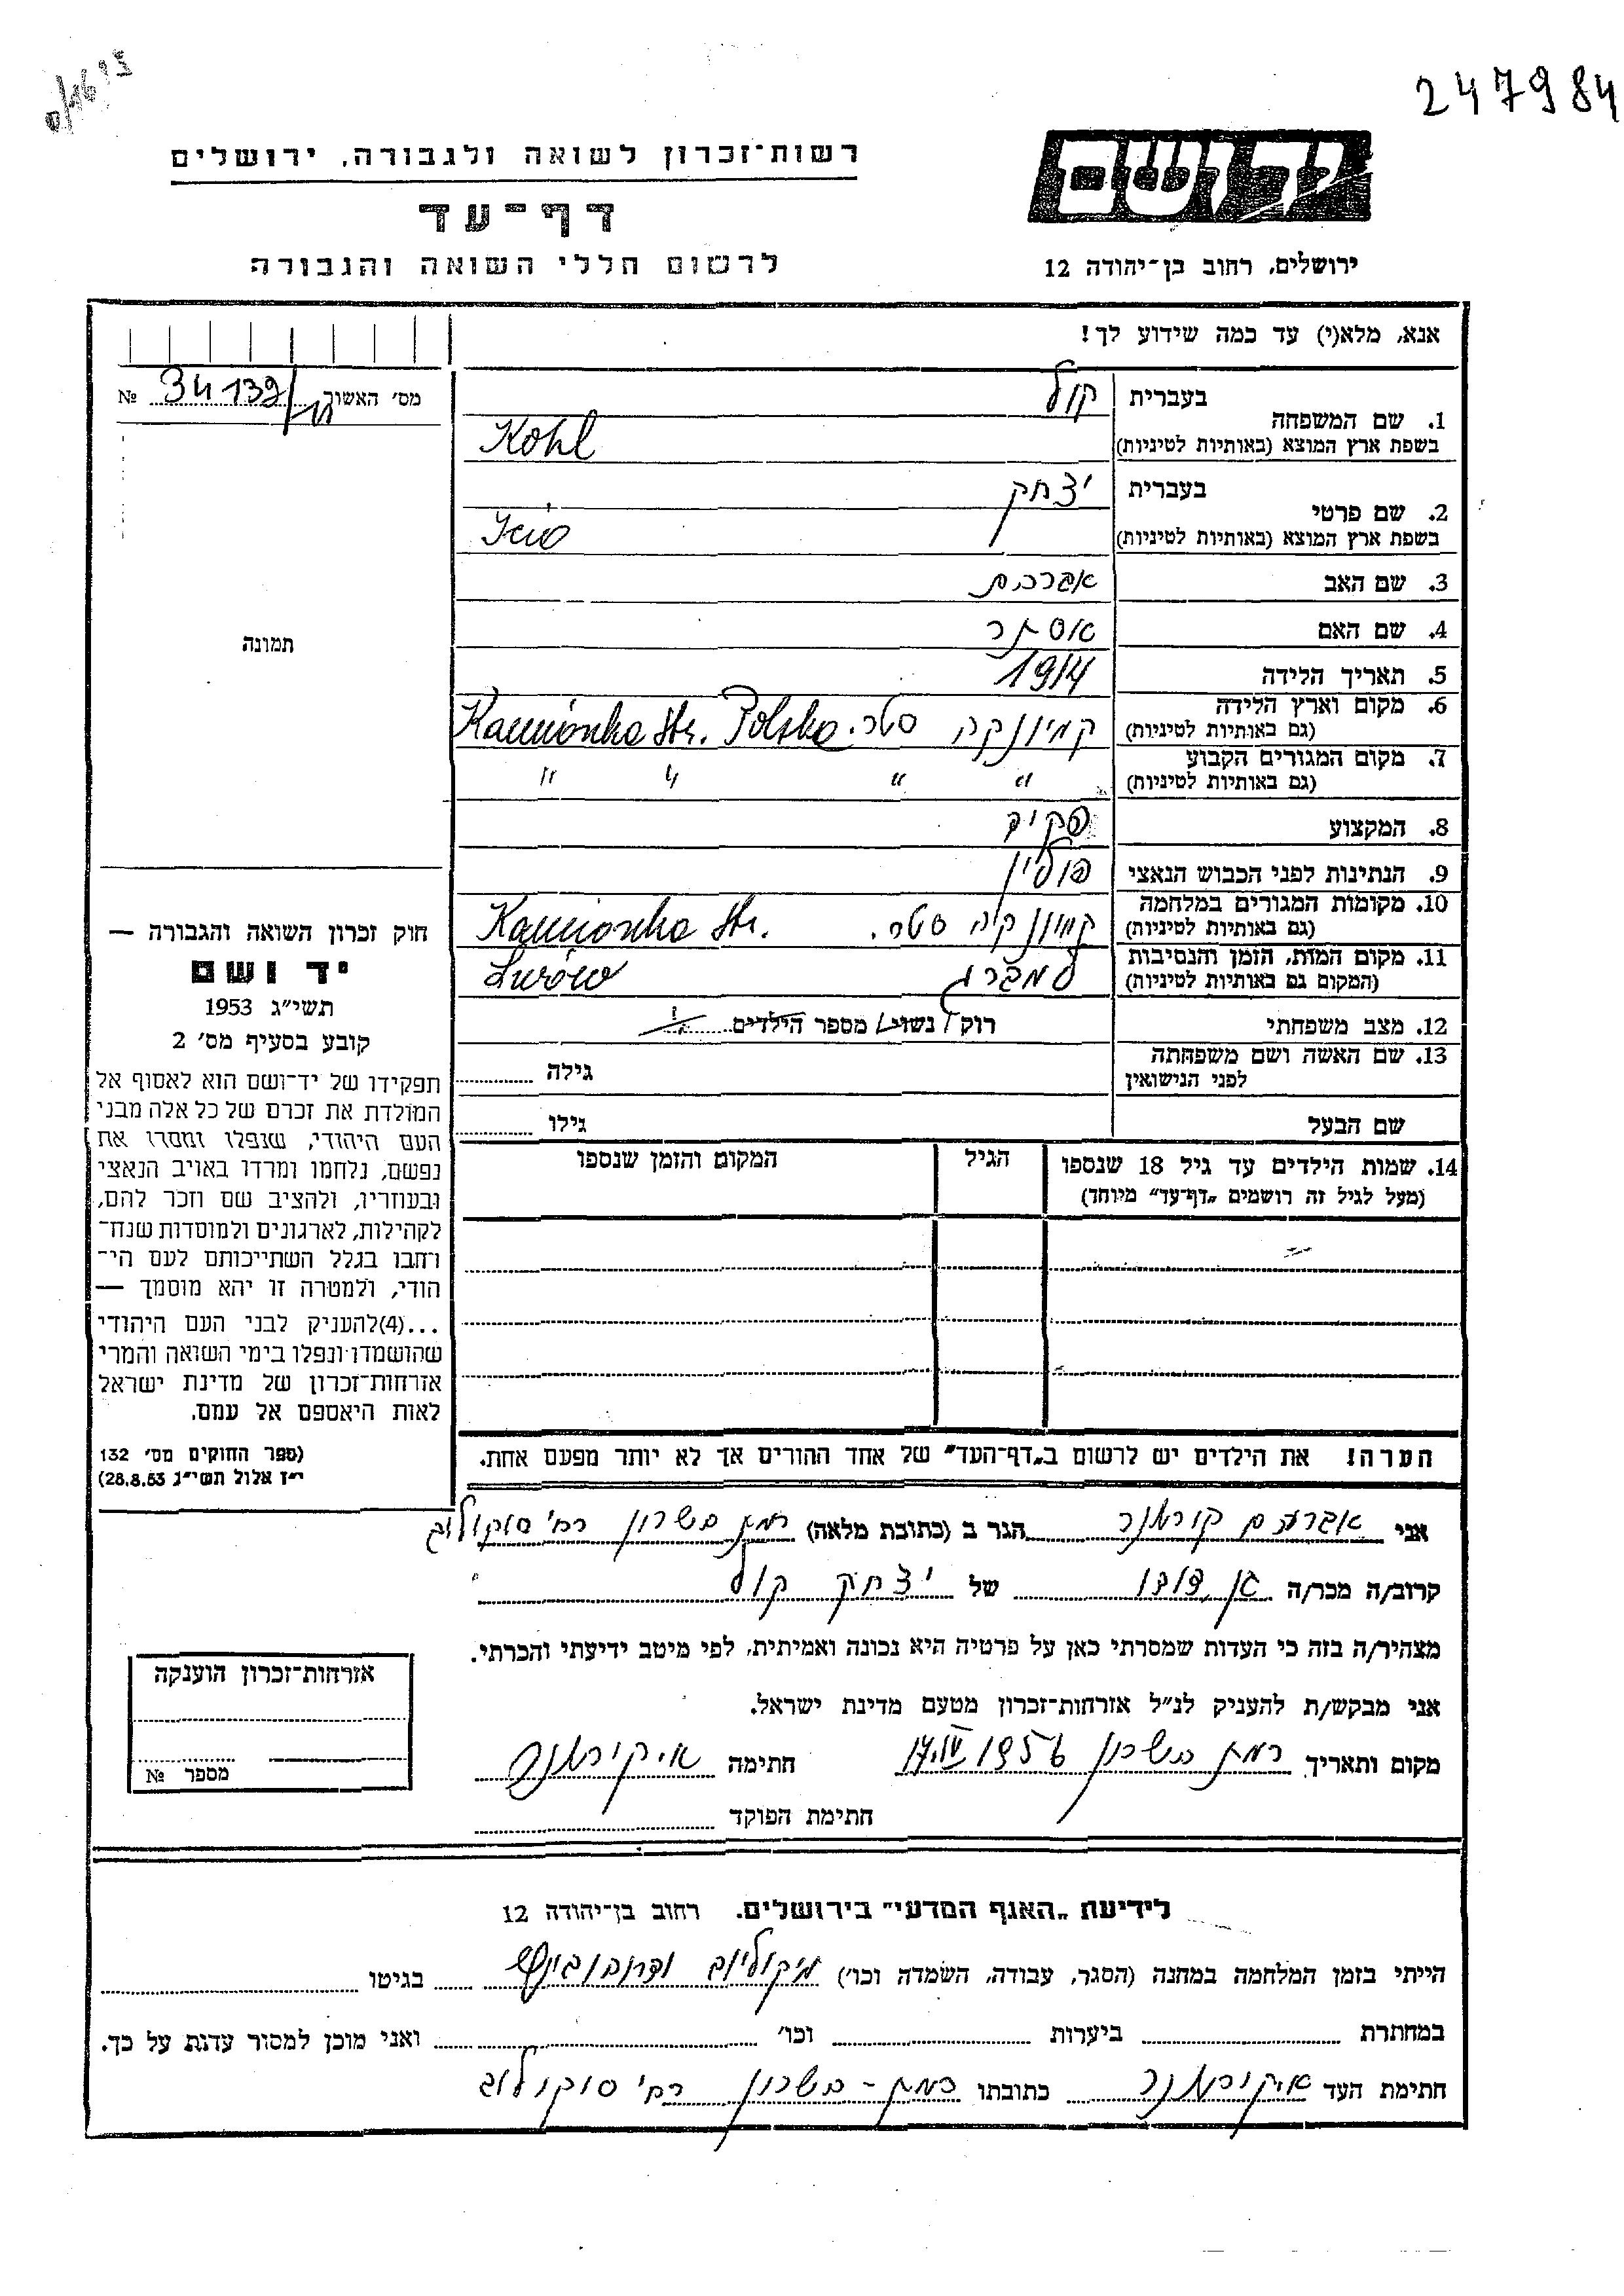 247984
יד ושם
רשות־זכרון לשואה ולגבורה, ירושלים
דף־עד
לרשום חללי השואה והגבורה
ירושלים, רחוב בן־יהודה 12
אנא, מלא(י) עד כמה שידוע לך!
מס׳ האשור 34139 №
1. שם המשפחה
בעברית קול
בשפת ארץ המוצא (באותיות לטיניות) Kohl
2. שם פרטי
בעברית יצחק
בשפת ארץ המוצא (באותיות לטיניות)
3. שם האב אברהם
4. שם האם אסתר
5. תאריך הלידה 1914
6. מקום וארץ הלידה (גם באותיות לטיניות) קמיונקה סטר. Kamionka Str. Polska
7. מקום המגורים הקבוע (גם באותיות לטיניות) " " " "
8. המקצוע פקיד
9. הנתינות לפני הכבוש הנאצי פולין
10. מקומות המגורים במלחמה (גם באותיות לטיניות) קמיונקה סטר. Kamionka Str.
11. מקום המות, הזמן והנסיבות (המקום גם באותיות לטיניות) למברג Lwów
12. מצב משפחתי רוק / נשוי / מספר הילדים
13. שם האשה ושם משפחתה לפני הנישואין גילה
שם הבעל גילו
14. שמות הילדים עד גיל 18 שנספו
(מעל לגיל זה רושמים „דף־עד” מיוחד)
הגיל
המקום והזמן שנספו
הערה! את הילדים יש לרשום ב„דף־העד” של אחד ההורים אך לא יותר מפעם אחת.
תמונה
חוק זכרון השואה והגבורה —
יד ושם
תשי״ג 1953
קובע בסעיף מס׳ 2
תפקידו של יד־ושם הוא לאסוף אל
המולדת את זכרם של כל אלה מבני
העם היהודי, שנפלו ומסרו את
נפשם, נלחמו ומרדו באויב הנאצי
ובעוזריו, ולהציב שם וזכר להם,
לקהילות, לארגונים ולמוסדות שנח־
רחבו בגלל השתייכותם לעם הי־
הודי, ולמטרה זו יהא מוסמך —
...(4)להעניק לבני העם היהודי
שהושמדו ונפלו בימי השואה והמרי
אזרחות־זכרון של מדינת ישראל
לאות היאספם אל עמם.
(ספר החוקים מס׳ 132
י״ז אלול תשי״ג 28.8.53)
אני אברהם הגר ב (כתובת מלאה) רמת השרון רח׳ סוקולוב
קרוב/ה מכר/ה בן דודו של יצחק קול
מצהיר/ה בזה כי העדות שמסרתי כאן על פרטיה היא נכונה ואמיתית, לפי מיטב ידיעתי והכרתי.
אני מבקש/ת להעניק לנ״ל אזרחות־זכרון מטעם מדינת ישראל.
מקום ותאריך רמת השרון 1956 חתימה
חתימת הפוקד
אזרחות־זכרון הוענקה
מספר №
לידיעת „האגף המדעי” בירושלים, רחוב בן־יהודה 12
הייתי בזמן המלחמה במחנה (הסגר, עבודה, השמדה וכו׳) בגיטו
במחתרת ביערות וכו׳ ואני מוכן למסור עדות על כך.
חתימת העד כתובתו רמת־השרון רח׳ סוקולוב